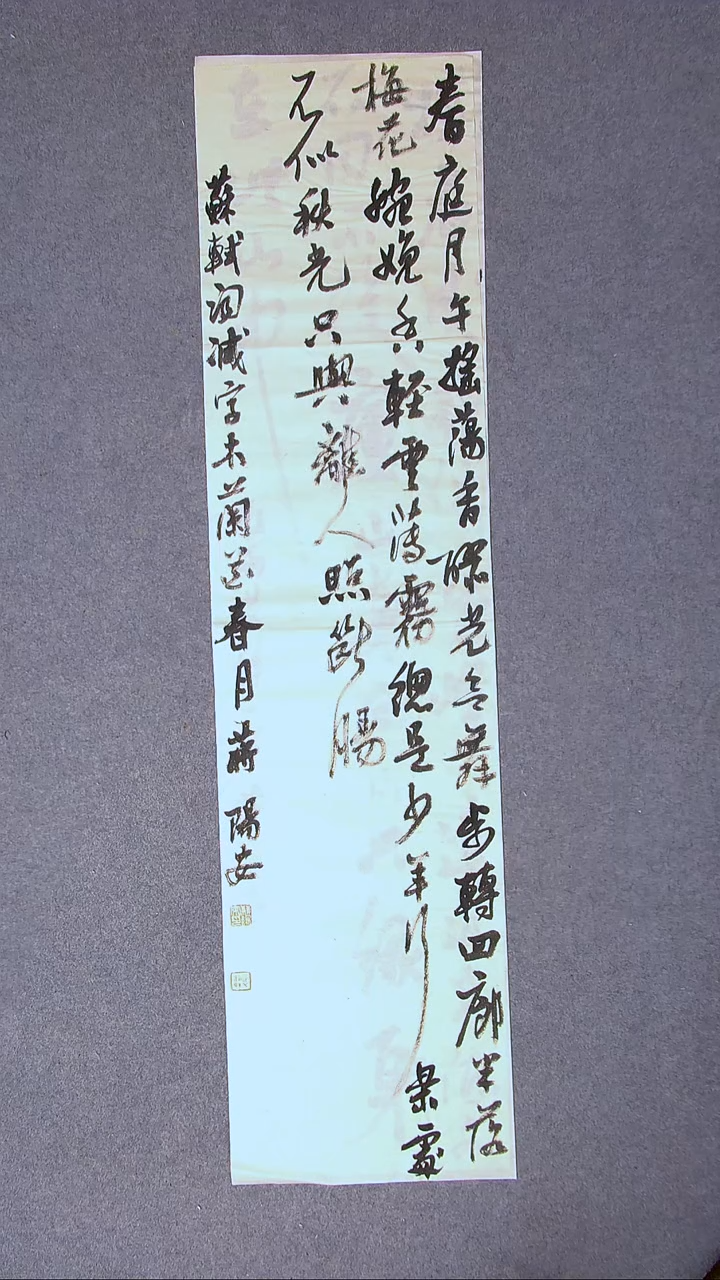 春庭月午搖蕩香醪光欲舞步轉回廊半落
梅花婉娩香輕雲薄霧總是少年行樂處
不似秋光只與離人照斷腸
蘇軾詞減字木蘭花春月蔣陽安